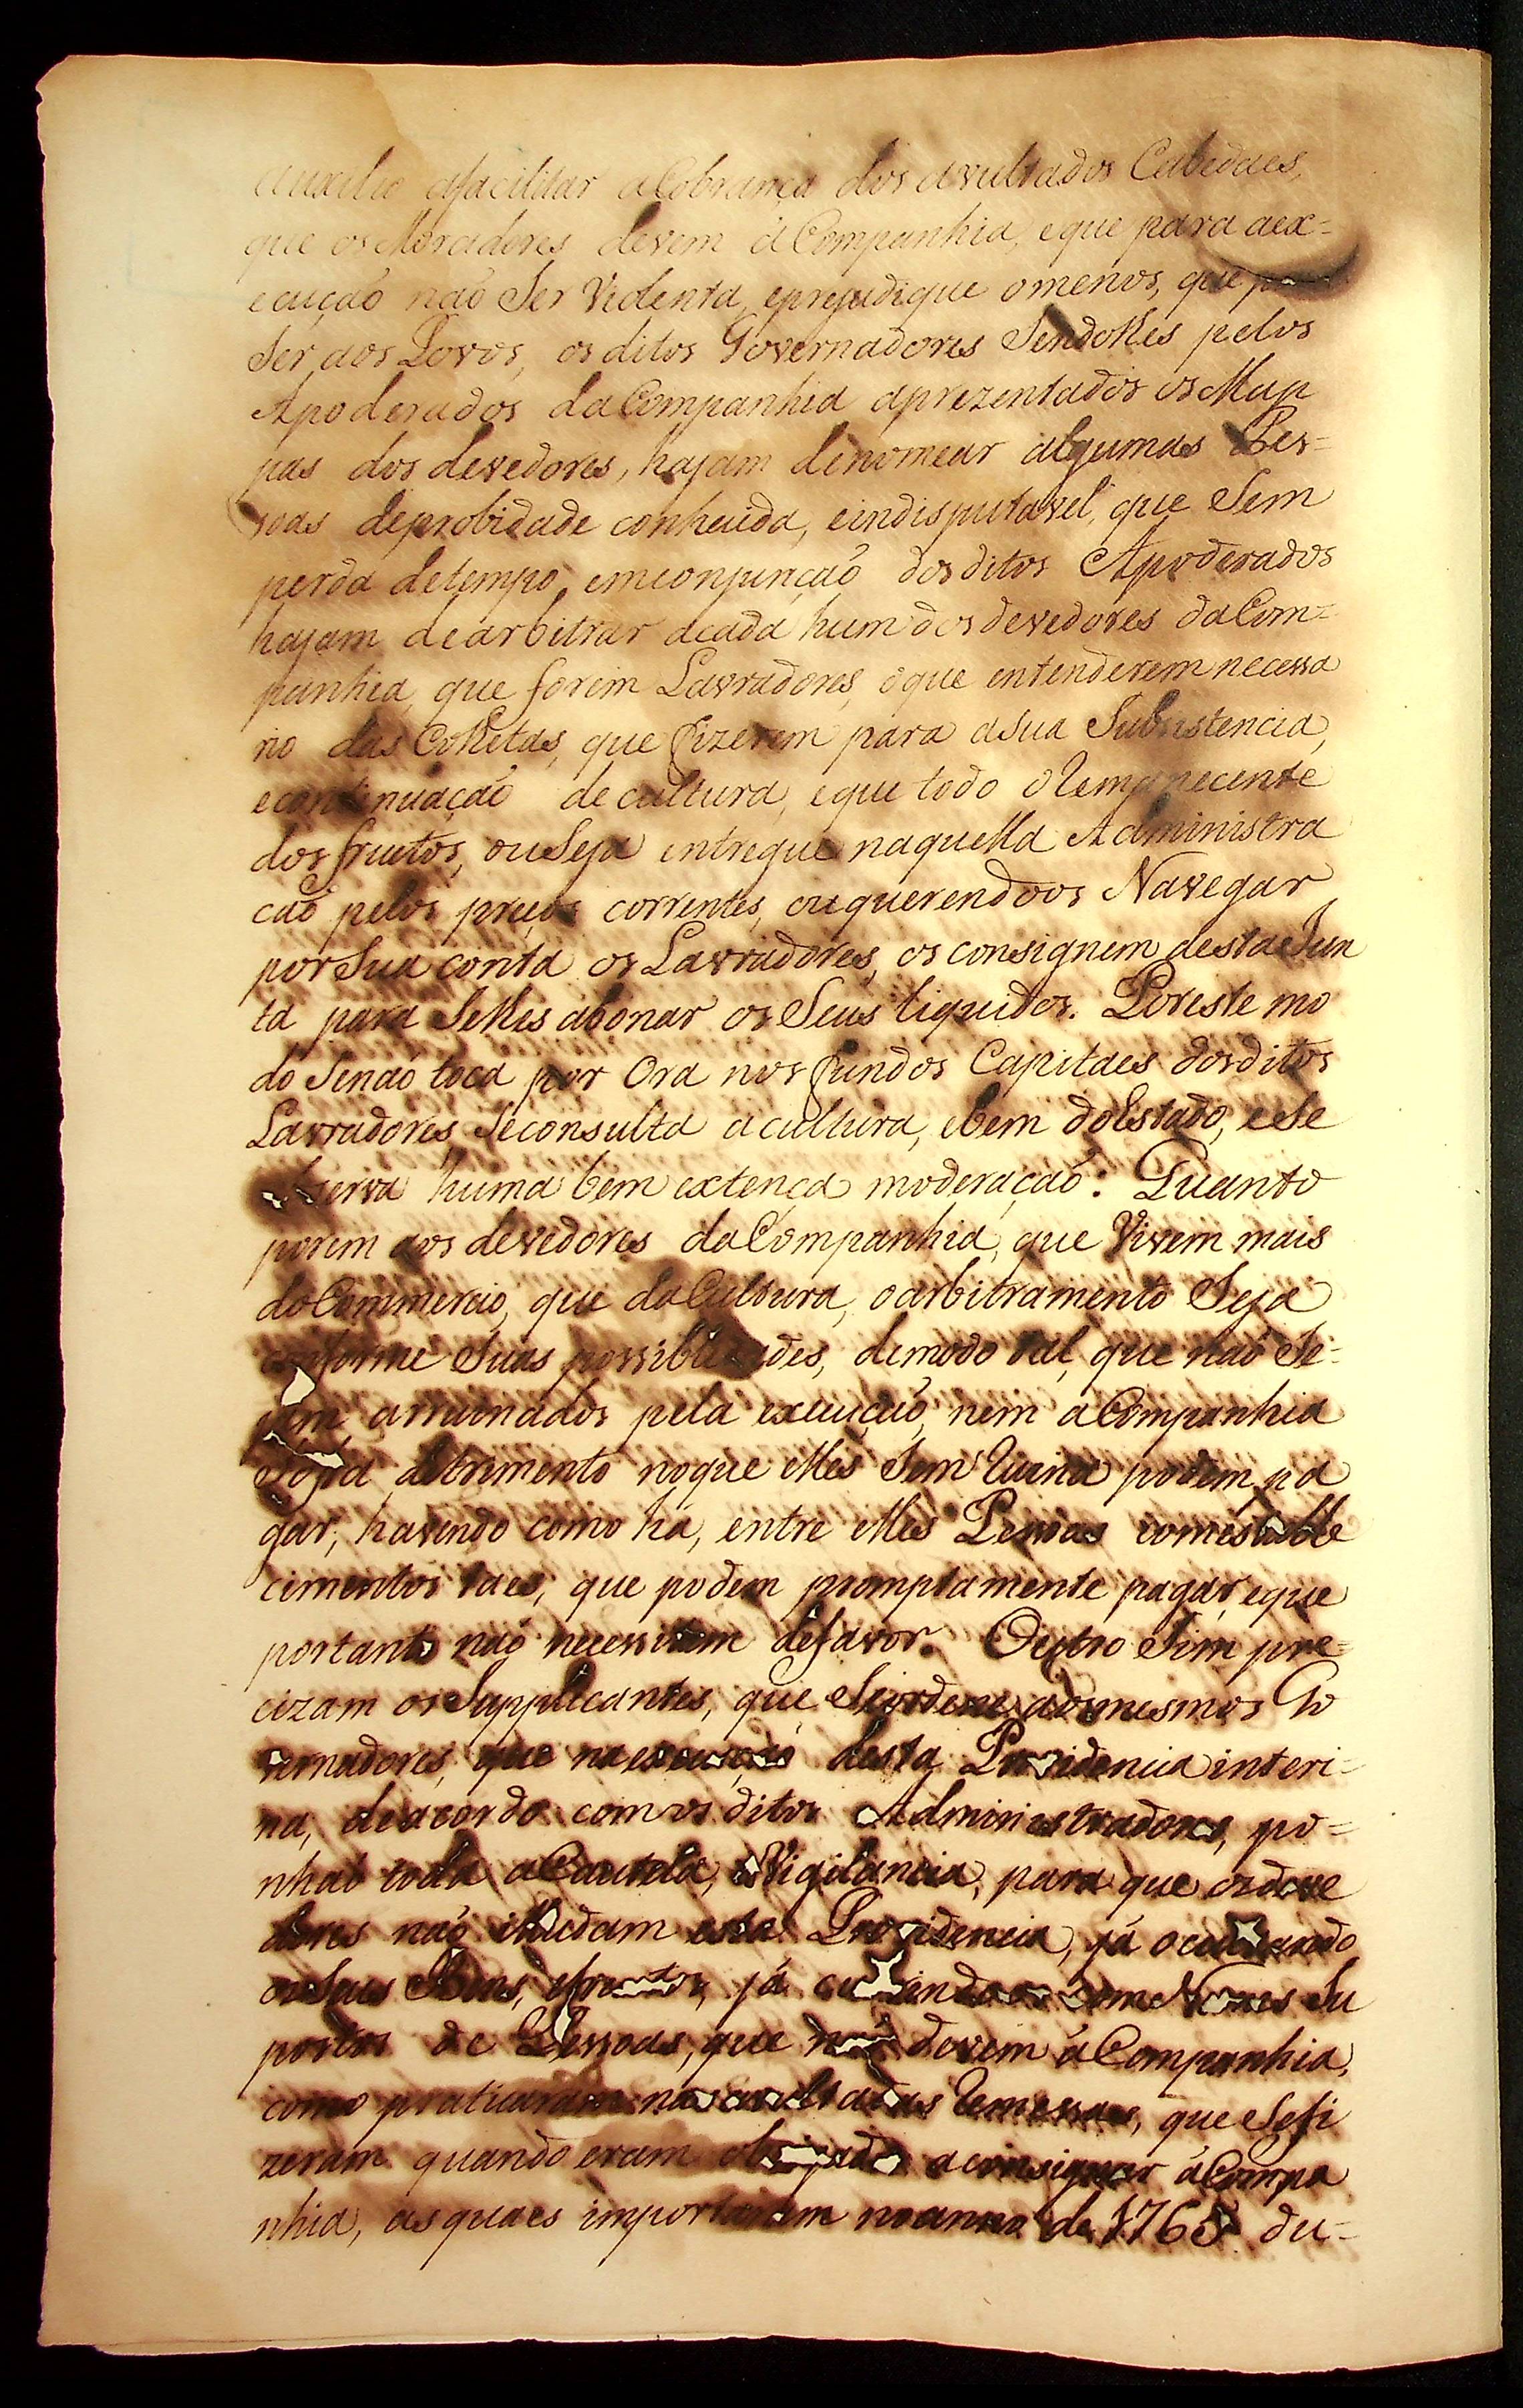 auxilio afacilitar aCobrança dos avultados Cabedaes,
que os Moradores devem áCompanhia, eque para aex=
ecuçaõ naõ Ser Violenta, eprejudique omenos, que
Ser, aos Povos, os ditos Governadores Sendolhes pelos
Apoderados daCompanhia aprezentados os Map
pas dos devedores, hajam denomear algumas Pes=
soas deprobidade conhecida, eindisputavel, que Sem
perda detempo, emconjunçaõ dos ditos Apoderados
hajam dearbitrar acada hum dos devedores daCom=
panhia, que forem Lavradores, oque entenderem necessa
rio das Colhetas, que fizerem para asua Subsistencia,
econtinuaçaõ de cultura, eque todo oRemanecente
dos fructos, ouSeja entregue naquella Administra
caõ pelos preços correntes, ouquerendoos Navegar
porSua conta os Lavradores, os consignem destaJun
ta para Selhes abonar os Seus liquidos. Poreste mo
do Senaõ toca por Ora nos fundos Capitaes dosditos
Lavradores, Seconsulta acultura, ebem doEstado, eSe
observa huma bem extença moderaçaõ: Quanto
porem aos devedores daCompanhia, que Vivem mais
doCommercio, que daCultura, oarbitramento Seja
conforme Suas possibilidades, demodo tal, que naõ Se=
jam arruinados pela execuçaõ, nem aCompanhia
Sofra detrimento noque elles Sem Ruina podem pa
gar, havendo como há, entre elles Pessoas comestable
cimentos taes, que podem promptamente pagar, eque
portanto naõ necessitem defavor. Outro Sim pre=
cizam osSupplicantes, que Seordene aosmesmos Go
vernadores, que naexecuçaõ desta Providencia interi=
na, deacordo comos ditos Administradores, po=
nhaõ toda aCautela, eVigilancia, para que osdeve
dores naõ illudam esta Providencia, já ocultando
osSeus Bens, efructos, já Nomes Su
postos de Pessoas, que naõ devem áCompanhia,
como praticaram nas avultadas Remessas, que Sefi
zeram quando eram obrigados aconsignar áCompa
nhia, asquaes importaram noanno de 1765 du=